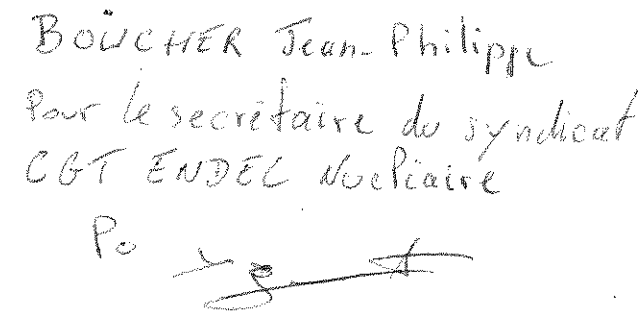 BOÜCHER Jean-Philippe
Pour le secrétaire du syndicat
CGT ENDEL Nucléaire
Po